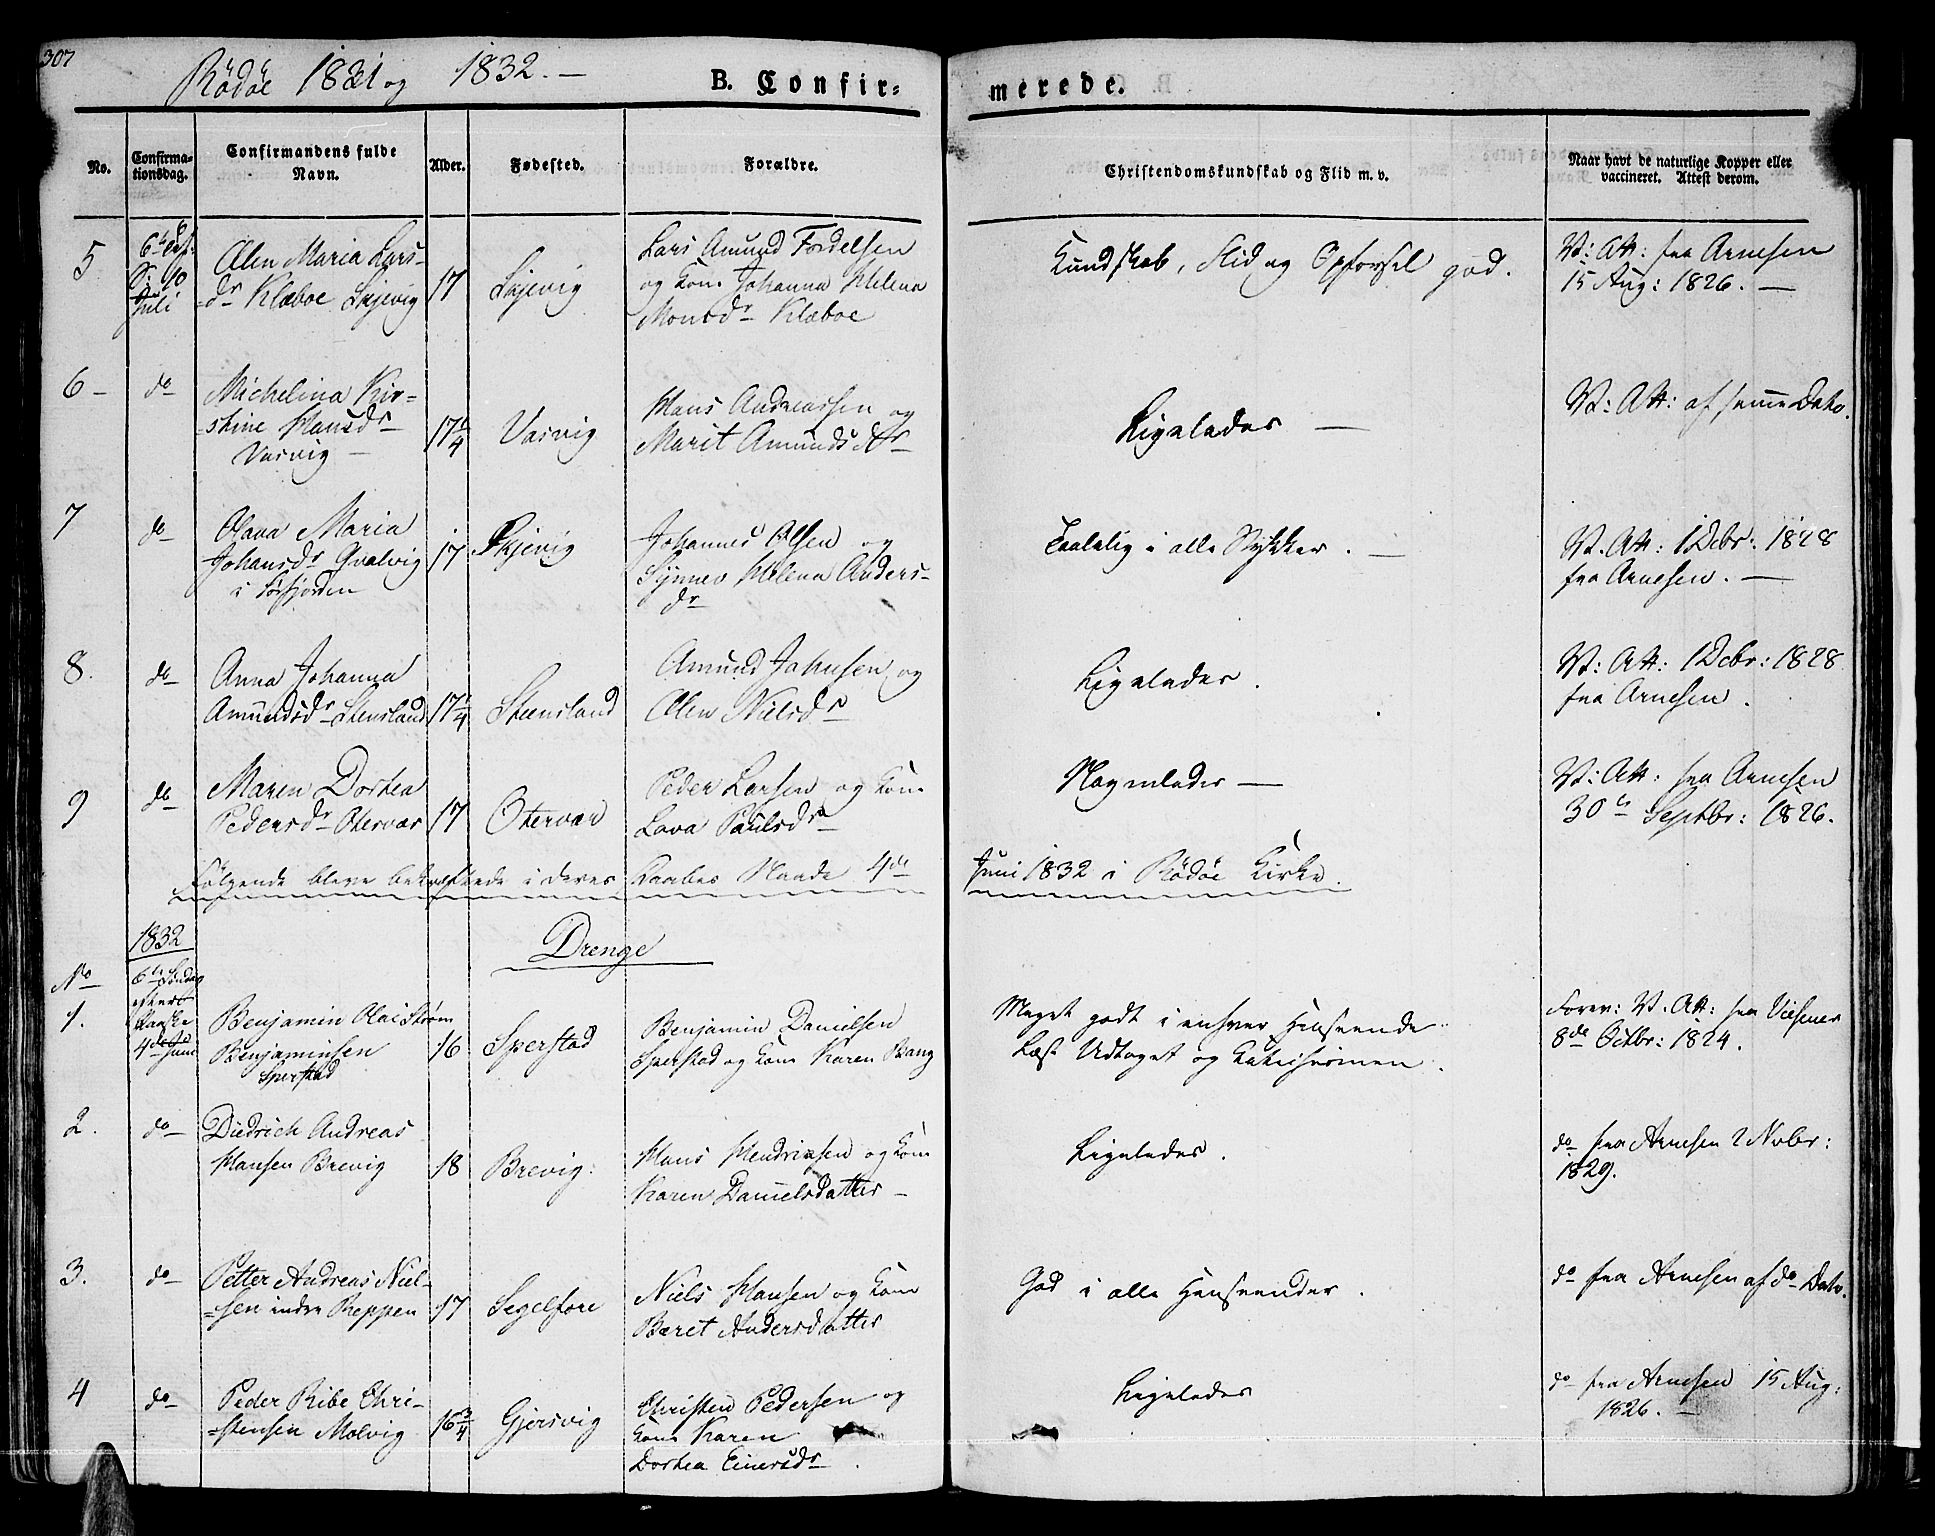 307
Rödöe 1831 og 1832. —
B. Confirmerede.
No. Confirmationsdag. Confirmandens fulde Navn. Alder. Fødested. Forældre. Christendomskundskab og Flid m. v. Naar havt de naturlige Kopper eller vaccineret. Attest derom.
5
10 Juli
Olen Maria Lars-
dr Klæboe Skjevig
17
Skjevig
Lars Amund Fordelsen
og Kone Johanna Helena
Monsdr Klæboe
Kundskab, Flid og Opførsel god.
V: Att: fra Arnesen
15 Aug: 1826. —
6 —
do
Michelina Kir-
-stine Hansdr
Vasvig —
17 1/4
Vasvig
Hans Andreassen og
Marit Amundsdr
Ligeledes —
V: Att: af samme Dato.
7
do
Olava Maria
Johansdr Qvalvig
i Sørfjorden
17
Skjevig
Johannes Olsen og
Synnev Helena Anders-
dr
Taalelig i alle Stykker. —
V. Att: 1 Debr: 1828
fra Arnesen. —
8.
do
Anna Johanna
Amundsdr Stensland
17 1/4
Steensland
Amund Johnsen og
Olen Nielsdr
Ligeledes.
V: Att: 1 Debr: 1828
fra Arnesen.
9
do
Maren Dorthea
Pedersdr Otervær
17
Otervær
Peder Larsen og Kone
Lava Paulsdr
Nogenledes —
V: Att: fra Arnesen
30te Septbr: 1826.
Følgende bleve bekræftede i deres Daabes Naade 4de Juni 1832 i Rödöe Kirke.
1832
Drenge
No
6te Søndag
efter
Paaske
4de Juni
1.
Benjamin Olai Strøm
Benjaminsen
Sperstad
16
Sperstad
Benjamin Danielsen
Sperstad og Kone Karen Bang
Meget godt i enhver Henseende
Læst Udtoget og Katechismen.
Forev: V. Att: fra
8de Octbr: 1824.
2.
do
Diedrich Andreas
Hansen Brevig
18
Brevig:
Hans Hendriksen og Kone
Karen Danielsdatter —
Ligeledes.
do fra Arnesen 2 Novbr:
1829.
3.
do
Petter Andreas Niel-
-sen indre Reppen
17
Segelfore
Niels Hansen og Kone
Beret Andersdatter
God i alle Henseender.
do fra Arnesen af do Dato.
4
do
Peder Ribe Chri-
-stensen Molvig
16 3/4
Gjersvig
Christen Pedersen og
Kone Karen
Dorthea Einersdr.
Ligeledes
do fra Arnesen 15 Aug:
1826. —